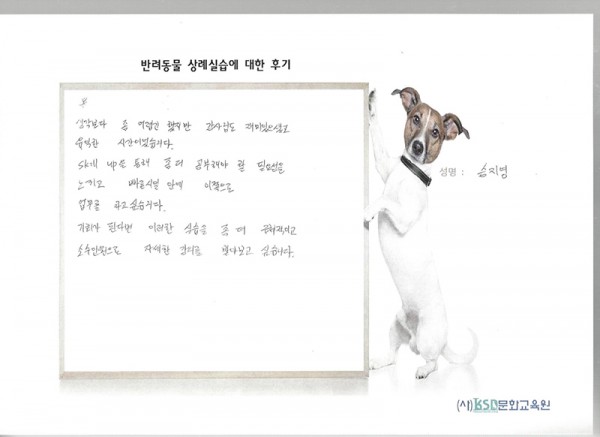 반려동물 상례실습에 대한 후기
생각보다 좀 어렵긴 했지만 강사님도 재미있으시고
유익한 시간이었습니다.
skill up을 통해 좀 더 공부해야 할 필요성을
느끼고
업무를 하고싶습니다.
기회가 된다면 이러한 실습을 좀 더
소수인원으로 자세한 강의를 받아보고 싶습니다.
성명 : 승지영
(사)KSD문화교육원